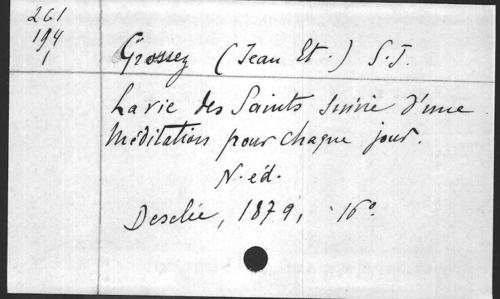 261
194
1
Grossez (Jean Et.) S.J.
La vie des Saints suivie d'une
Méditation pour chaque jour.
N. éd.
Desclée, 1879, 16°